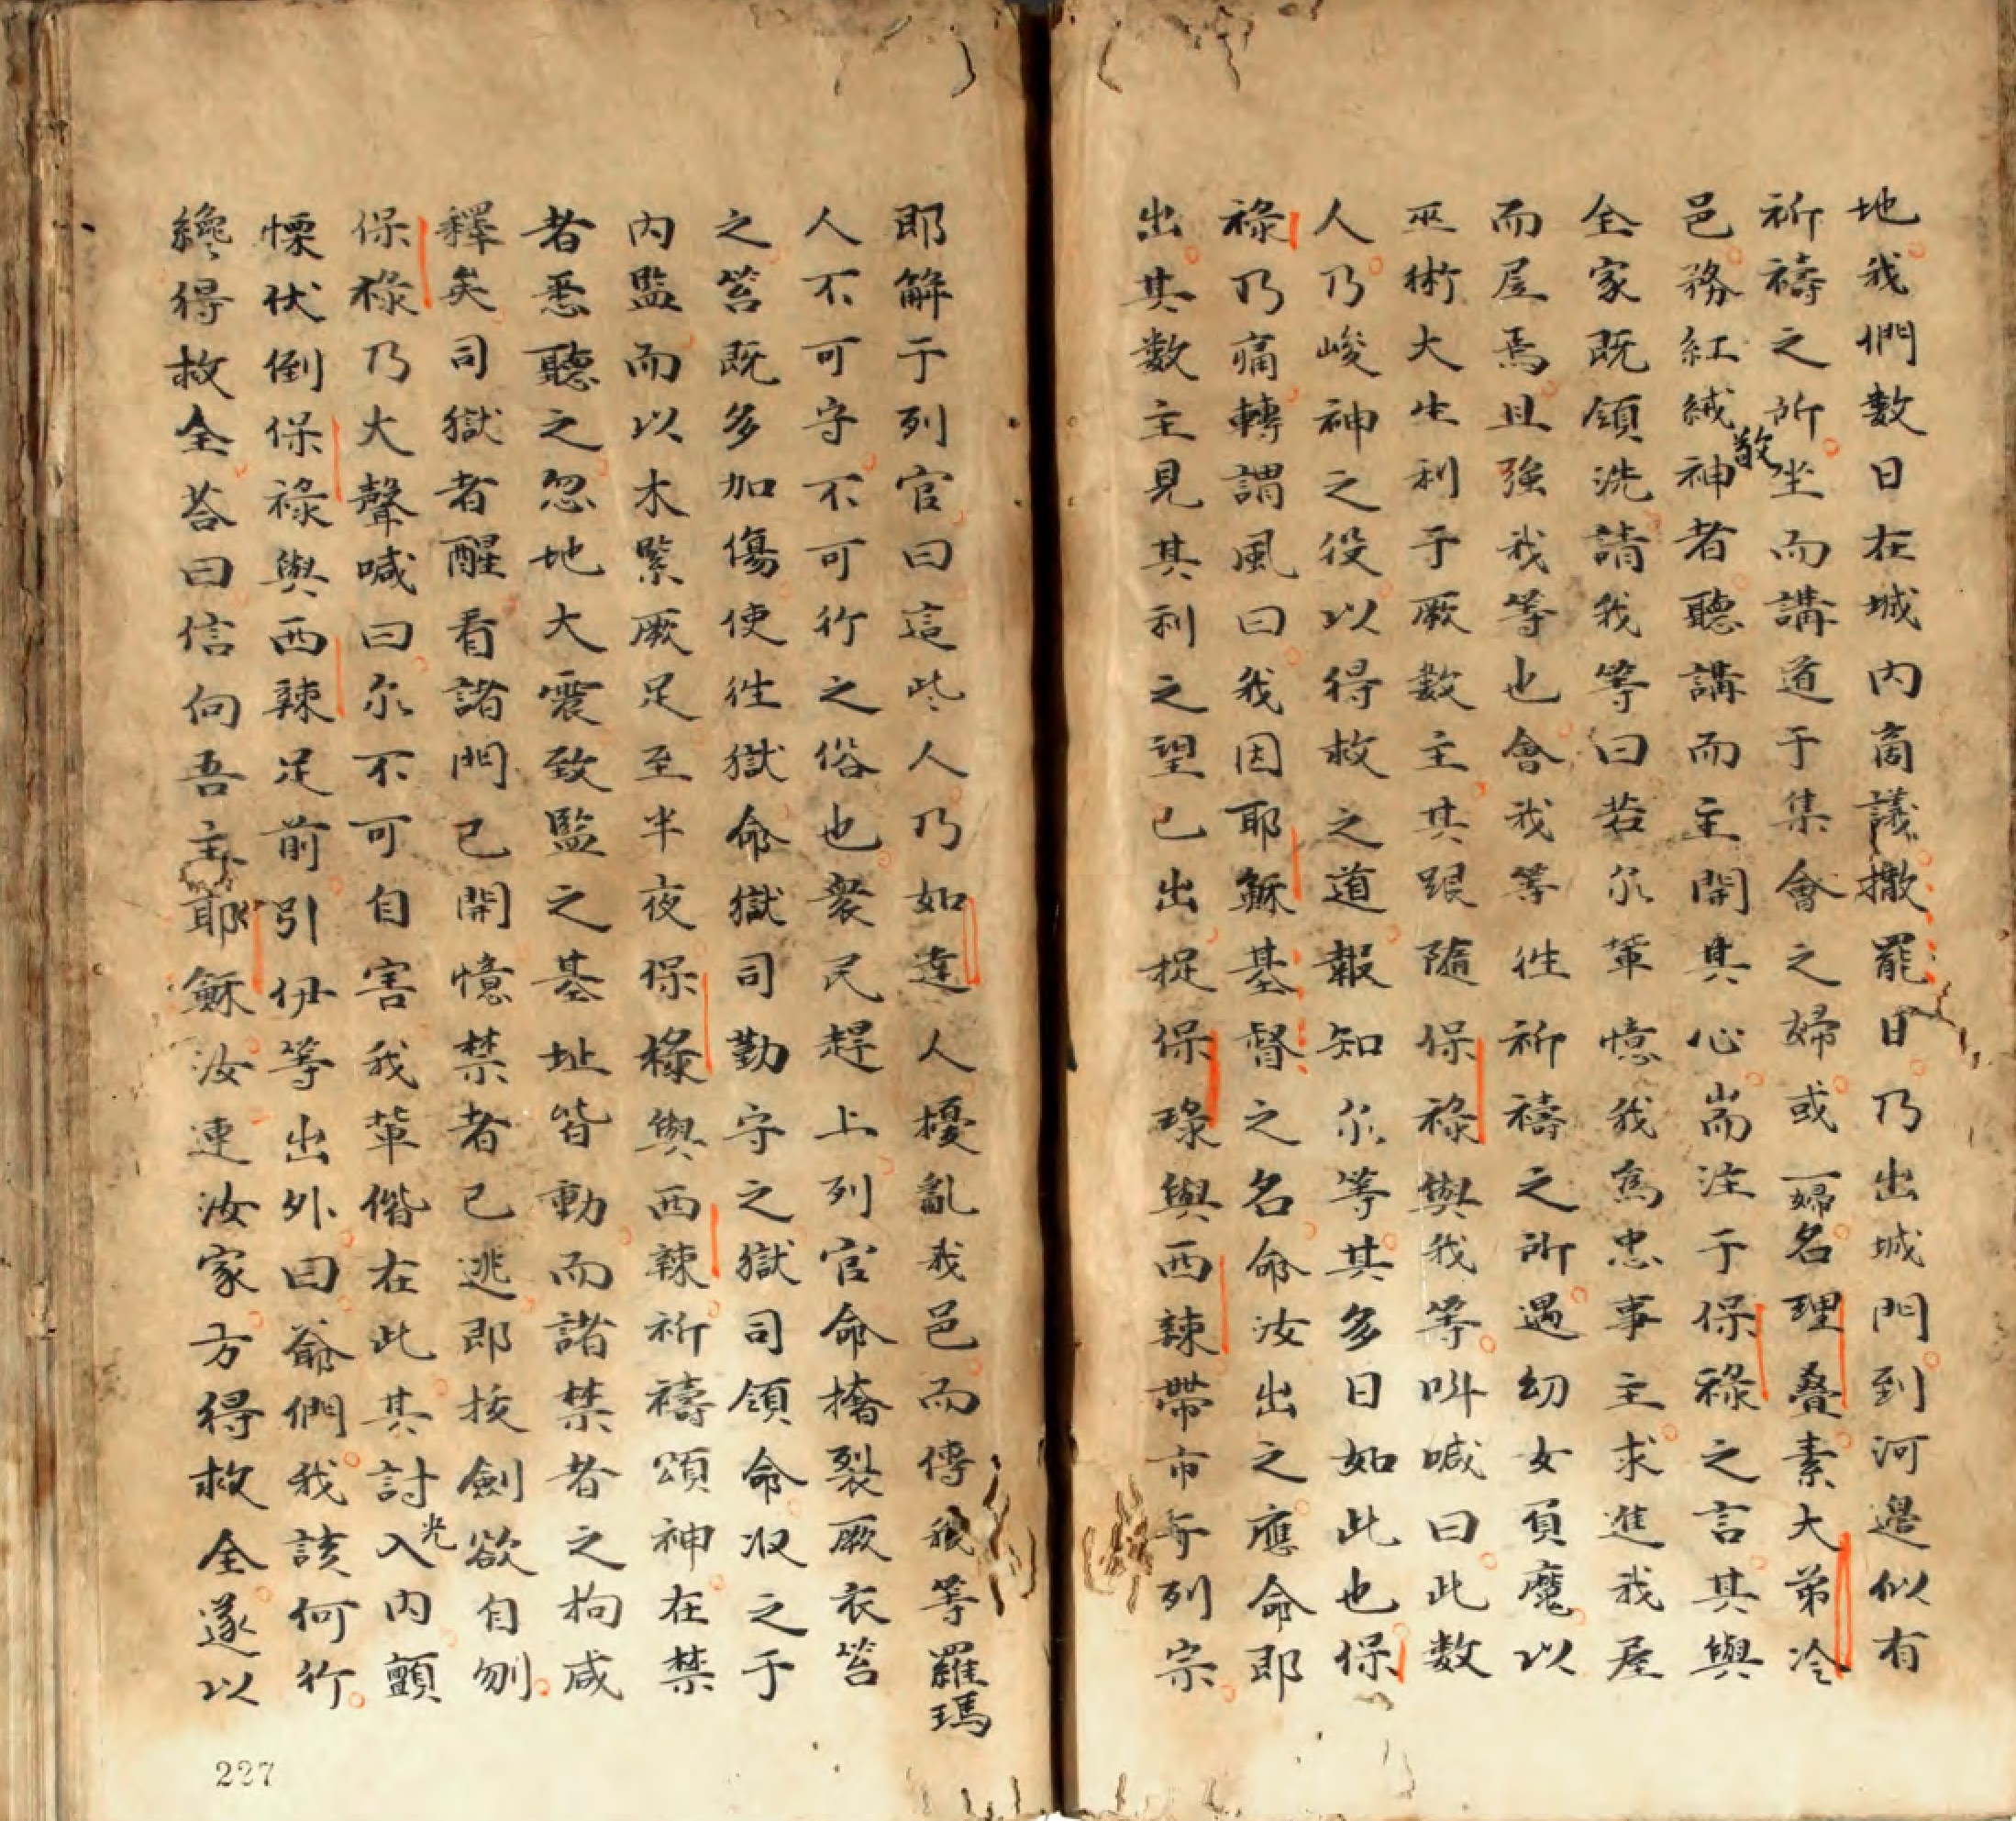 地我們數日在城內商議撒罷日乃出城門到河邉似有
祈禱之所坐而講道于集會之婦或一婦名理疊素大弟冷
邑務紅絨敬神者聽講而主開其心耑注于保祿之言其與
全家既領洗請我等曰若尔軰憶我為忠事主求進我屋
而居焉且強我等也會我等徃祈禱之所遇幼女負魔以
巫術大生利于厥數主其跟隨保祿與我等叫喊曰此數
人乃峻神之役以得救之道報知尔等其多日如此也保
祿乃痛轉謂風曰我因耶穌基督之名命汝出之應命即
出其數主見其利之望已出捉保琭與西辣帶市于列宗
即解于列官曰這些人乃如達人擾亂我邑而傳我等羅瑪
人不可守不可行之俗也衆民趕上列官命撦裂厥衣笞
之笞既多加傷使徃獄命獄司勤守之獄司領命収之于
內監而以木緊厥足至半夜保祿與西辣祈禱頌神在禁
者悉聽之忽地大震致監之基址皆動而諸禁者之拘咸
釋矣司獄者醒看諸門已開憶禁者已逃即拔劍欲自刎
保祿乃大聲喊曰尔不可自害我軰偕在此其討光入內顫
慄伏倒保祿與西辣足前引伊等出外曰爺們我該何行
纔得救全荅曰信向吾主耶穌汝連汝家方得救全遂以
227